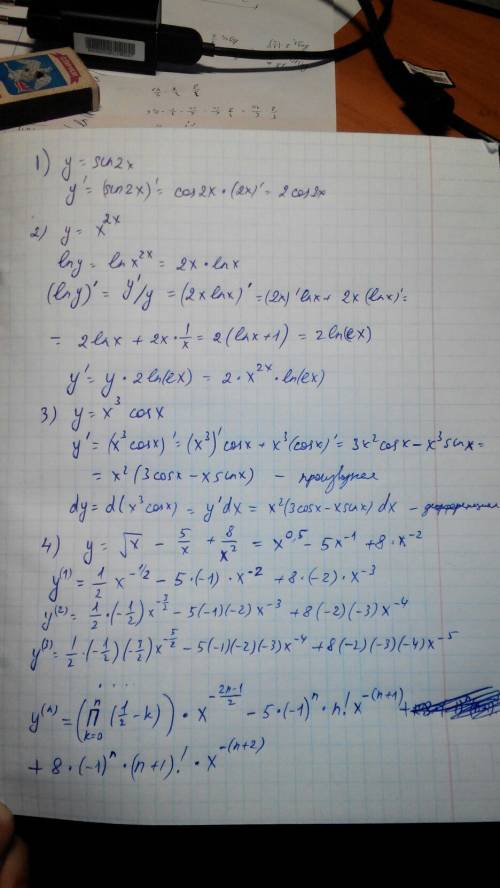 1) y = sin2x
y' = (sin2x)' = cos2x·(2x)' = 2cos2x
2) y = x^{2x}
lny = lnx^{2x} = 2x·lnx
(lny)' = y'/y = (2xlnx)' = (2x)'lnx + 2x(lnx)' =
= 2lnx + 2x·\frac{1}{x} = 2(lnx+1) = 2ln(ex)
y' = y·2ln(ex) = 2·x^{2x}·ln(ex)
3) y = x^3 cosx
y' = (x^3cosx)' = (x^3)'cosx + x^3(cosx)' = 3x^2cosx - x^3sinx =
= x^2(3cosx - xsinx) - производная
dy = d(x^3cosx) = y'dx = x^2(3cosx - xsinx)dx - дифференциал
4) y = \sqrt{x} - \frac{5}{x} + \frac{8}{x^2} = x^{0,5} - 5x^{-1} + 8·x^{-2}
y^{(1)} = \frac{1}{2}x^{-1/2} - 5·(-1)·x^{-2} + 8·(-2)·x^{-3}
y^{(2)} = \frac{1}{2}·(-\frac{1}{2})x^{-\frac{3}{2}} - 5(-1)(-2)x^{-3} + 8(-2)(-3)x^{-4}
y^{(3)} = \frac{1}{2}·(-\frac{1}{2})(-\frac{3}{2})x^{-\frac{5}{2}} - 5(-1)(-2)(-3)x^{-4} + 8(-2)(-3)(-4)x^{-5}
.....
y^{(n)} = (\prod_{k=0}^{n}(\frac{1}{2}-k))·x^{-\frac{2n-1}{2}} - 5·(-1)^n·n!x^{-(n+1)} +
+ 8·(-1)^n·(n+1)!·x^{-(n+2)}